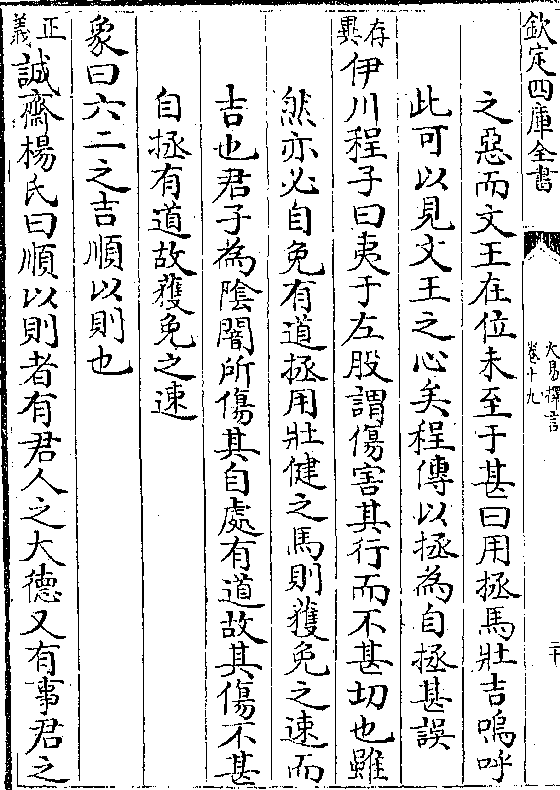 欽定四庫全書
大易擇言
卷十九
二十
之惡而文王在位未至于甚曰用拯馬壯吉嗚呼
此可以見文王之心矣程傳以拯為自拯甚誤
存異
伊川程子曰夷于左股謂傷害其行而不甚切也雖
然亦必自免有道拯用壯健之馬則獲免之速而
吉也君子為陰闇所傷其自處有道故其傷不甚
自拯有道故獲免之速
象曰六二之吉順以則也
正義
誠齋楊氏曰順以則者有君人之大德又有事君之